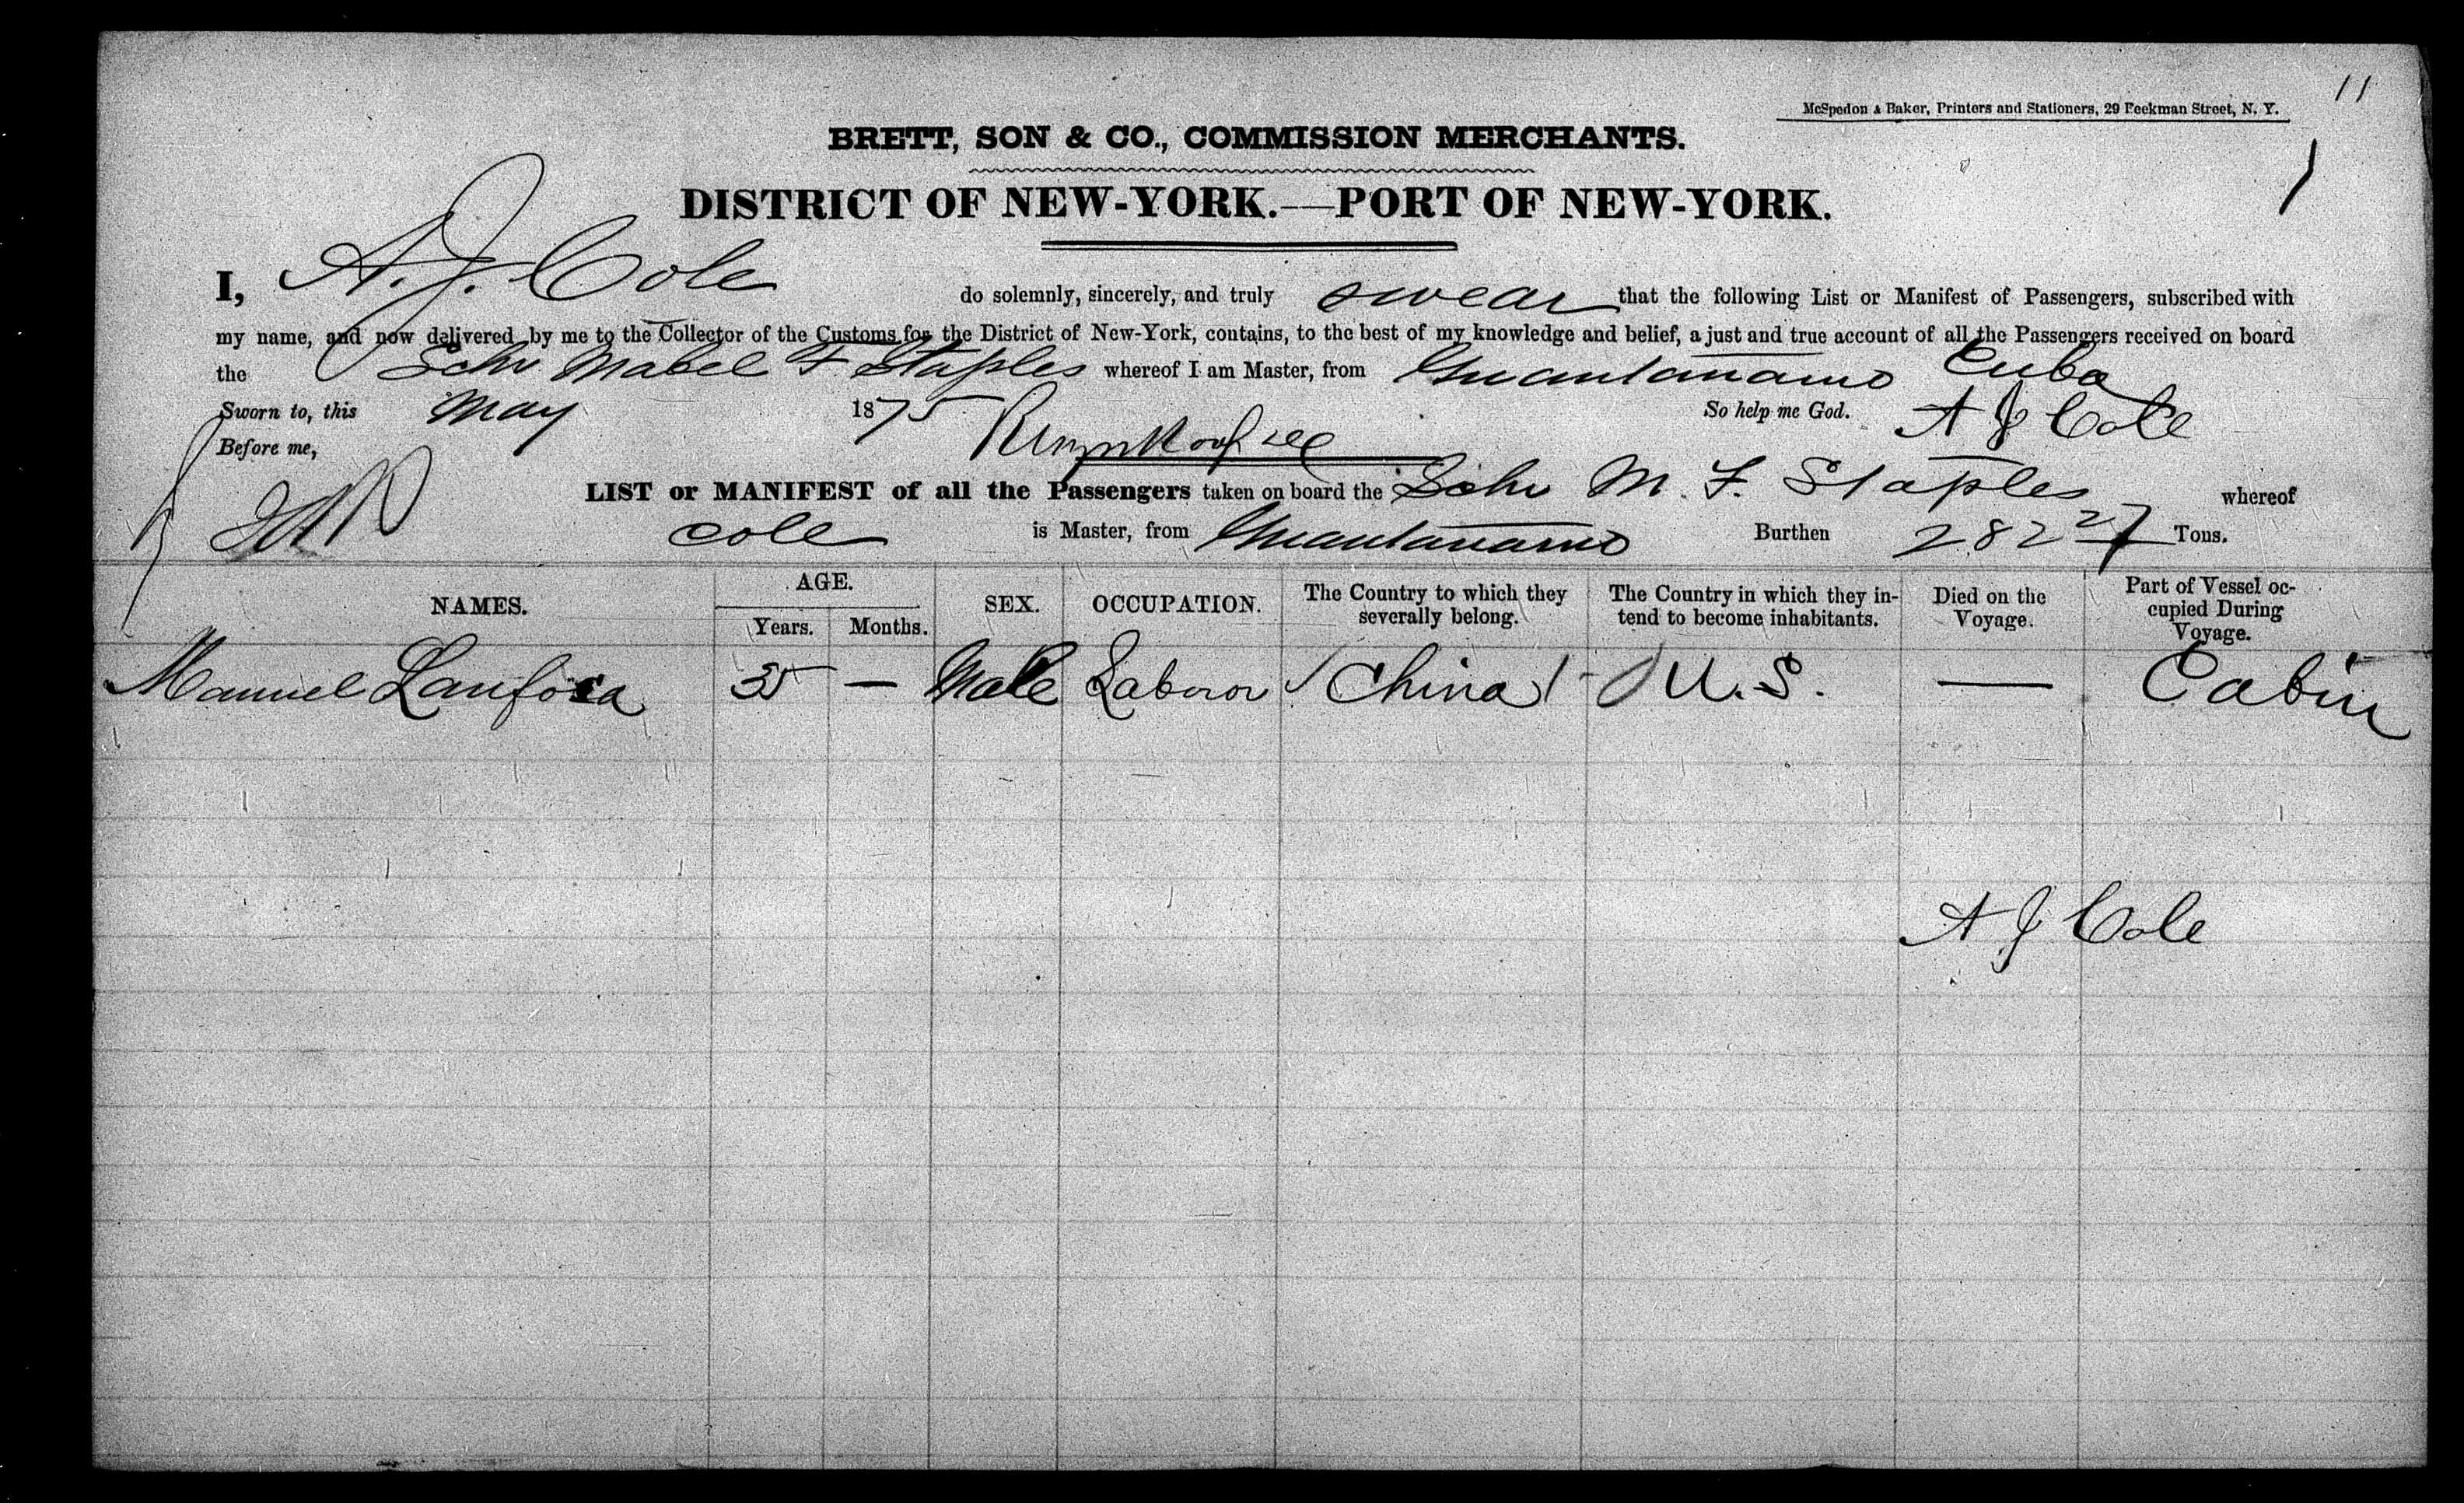 11
McSpedon & Baker, Printers and Stationers, 29 Beekman Street, N. Y.
BRETT, SON & CO., COMMISSION MERCHANTS.
1
DISTRICT OF NEW-YORK.—PORT OF NEW-YORK.
I, A. J. Cole do solemnly, sincerely, and truly swear that the following List or Manifest of Passengers, subscribed with
my name, and now delivered by me to the Collector of the Customs for the District of New-York, contains, to the best of my knowledge and belief, a just and true account of all the Passengers received on board
the Schr Mabel F Staples whereof I am Master, from Guantanamo Cuba
Sworn to, this May 1875 So help me God. A J Cole
Before me,
LIST or MANIFEST of all the Passengers taken on board the Schr M. F. Staples whereof
Cole is Master, from Guantanamo Burthen 282 27 Tons.
NAMES. AGE. Years. Months. SEX. OCCUPATION. The Country to which they severally belong. The Country in which they intend to become inhabitants. Died on the Voyage. Part of Vessel occupied During Voyage.
Manuel 35 — Male Labour China U.S. — Cabin
A J Cole